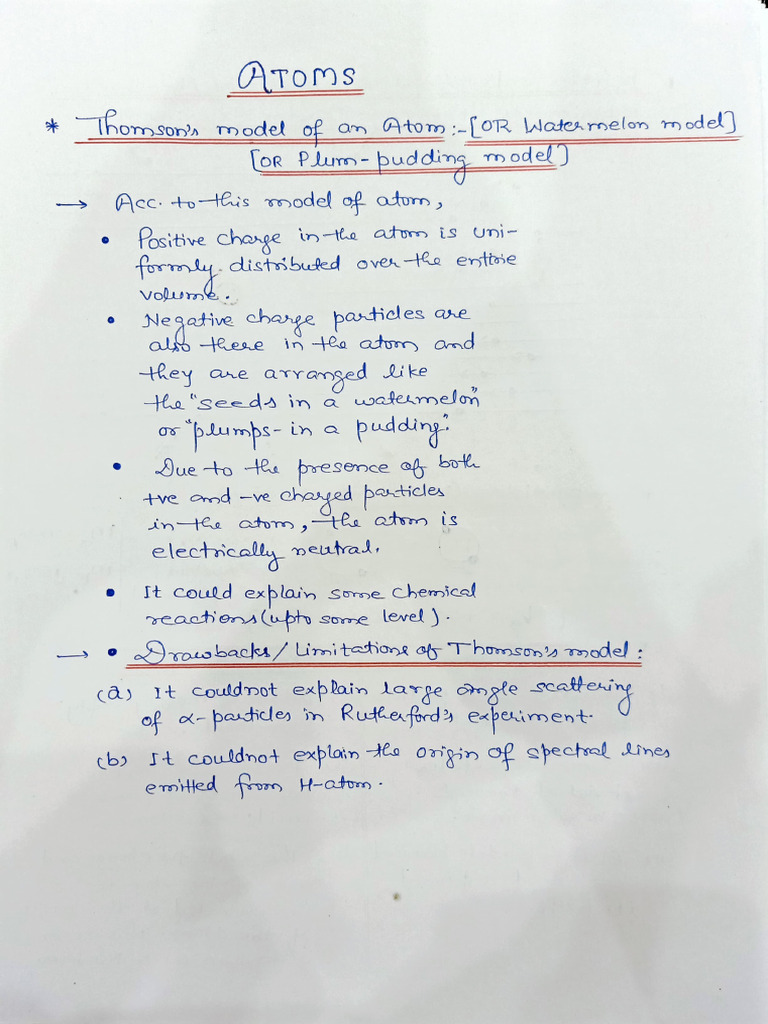 ATOMS
* Thomson's model of an Atom:- [OR Watermelon model]
[OR Plum-pudding model]
→ Acc. to this model of atom,
• Positive charge in the atom is uni-
formly distributed over the enttire
volume.
• Negative charge particles are
also there in the atom and
they are arranged like
the "seeds in a watermelon"
or "plumps- in a pudding".
• Due to the presence of both
+ve and -ve charged particles
in the atom, the atom is
electrically neutral.
• It could explain some chemical
reactions (upto some level).
→ • Drawbacks/Limitations of Thomson's model:
(a) It couldnot explain large angle scattering
of α-particles in Rutherford's experiment.
(b) It couldnot explain the origin of spectral lines
emitted from H-atom.